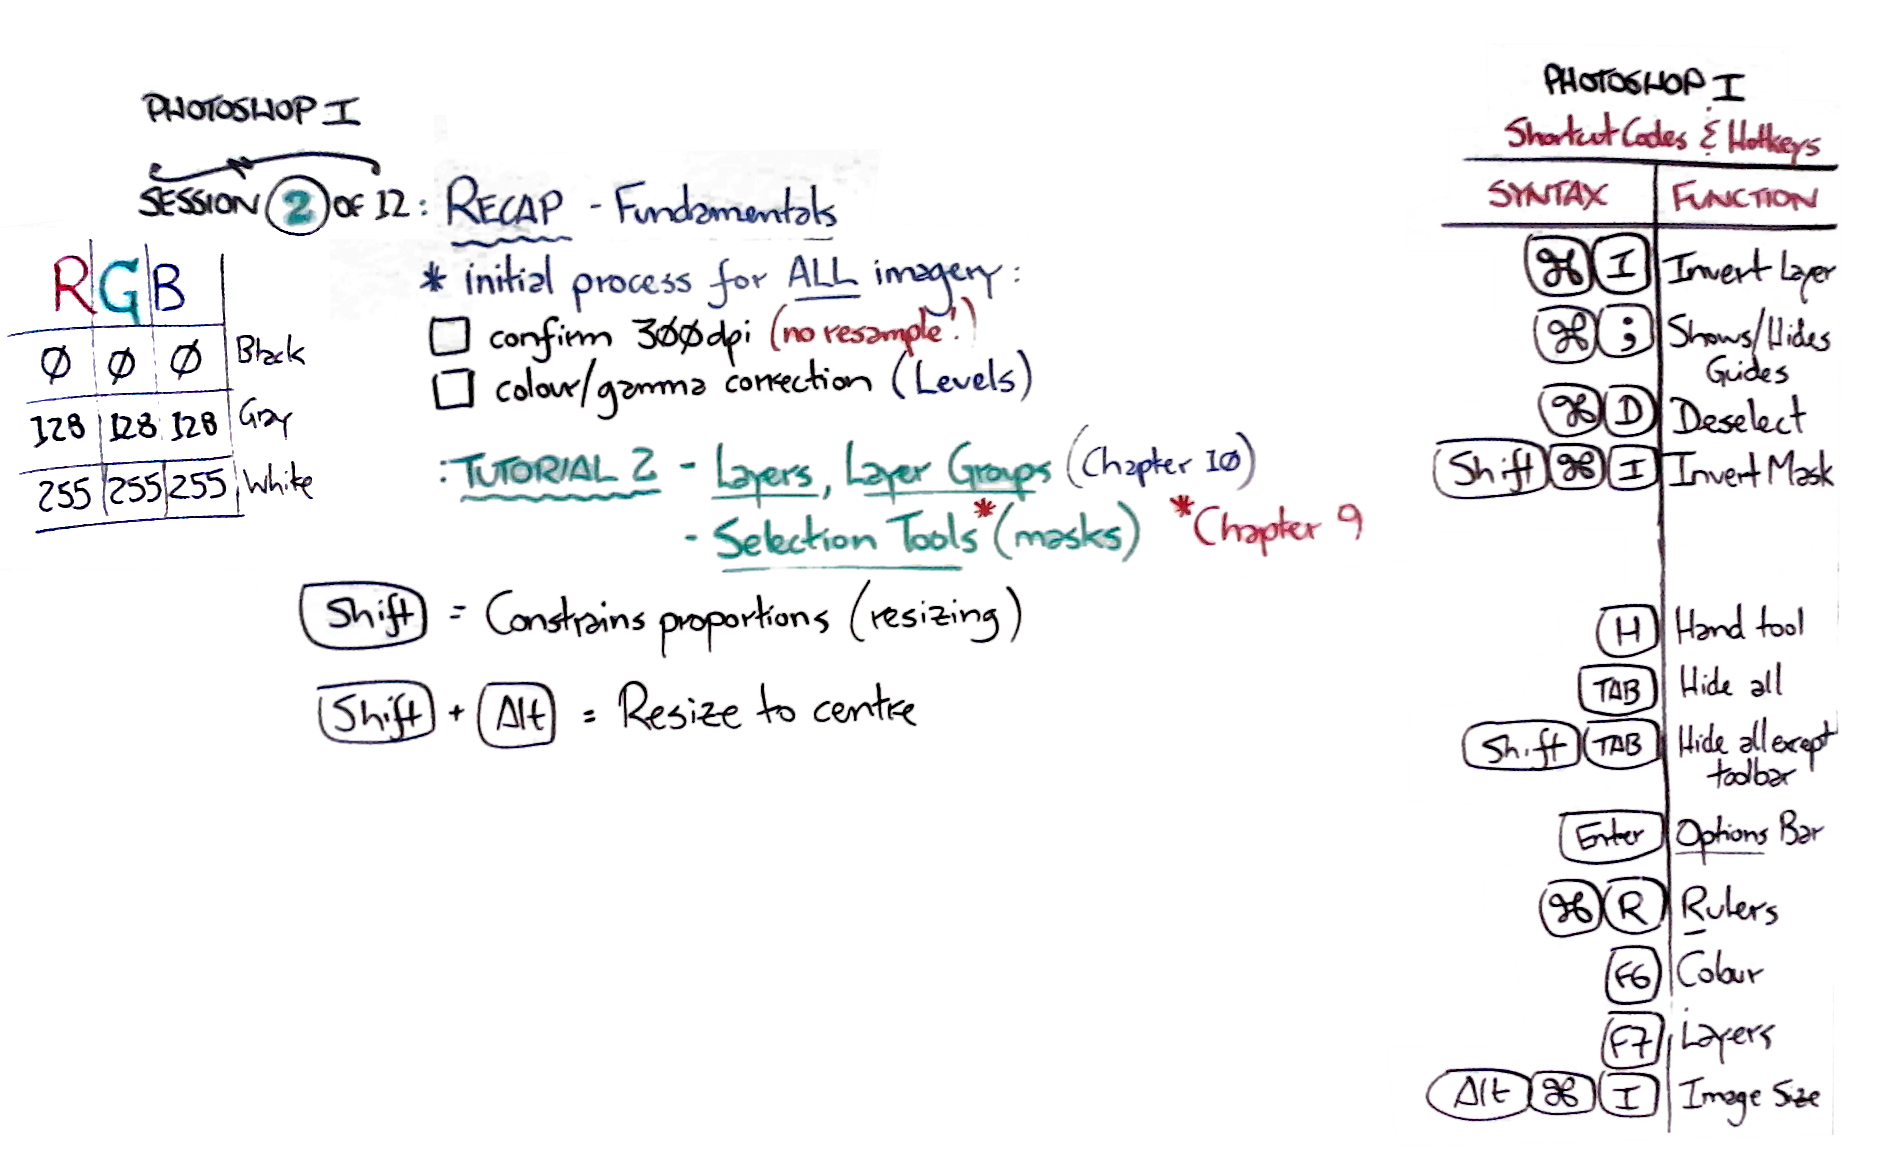 PHOTOSHOP I
SESSION 2 OF 12: RECAP - Fundamentals
R G B
Ø Ø Ø Black
128 128 128 Gray
255 255 255 White
* initial process for ALL imagery:
confirm 3ØØdpi (no resample!)
colour/gamma correction (Levels)
: TUTORIAL 2 - Layers, Layer Groups (Chapter 1Ø)
- Selection Tools* (masks) *Chapter 9
Shift = Constrains proportions (resizing)
Shift + Alt = Resize to centre
PHOTOSHOP I
Shortcut Codes & Hotkeys
SYNTAX FUNCTION
⌘ I Invert Layer
⌘ ; Shows/Hides
Guides
⌘ D Deselect
Shift ⌘ I Invert Mask
H Hand tool
TAB Hide all
Shift TAB Hide all except
toolbar
Enter Options Bar
⌘ R Rulers
F6 Colour
F7 Layers
Alt ⌘ I Image Size